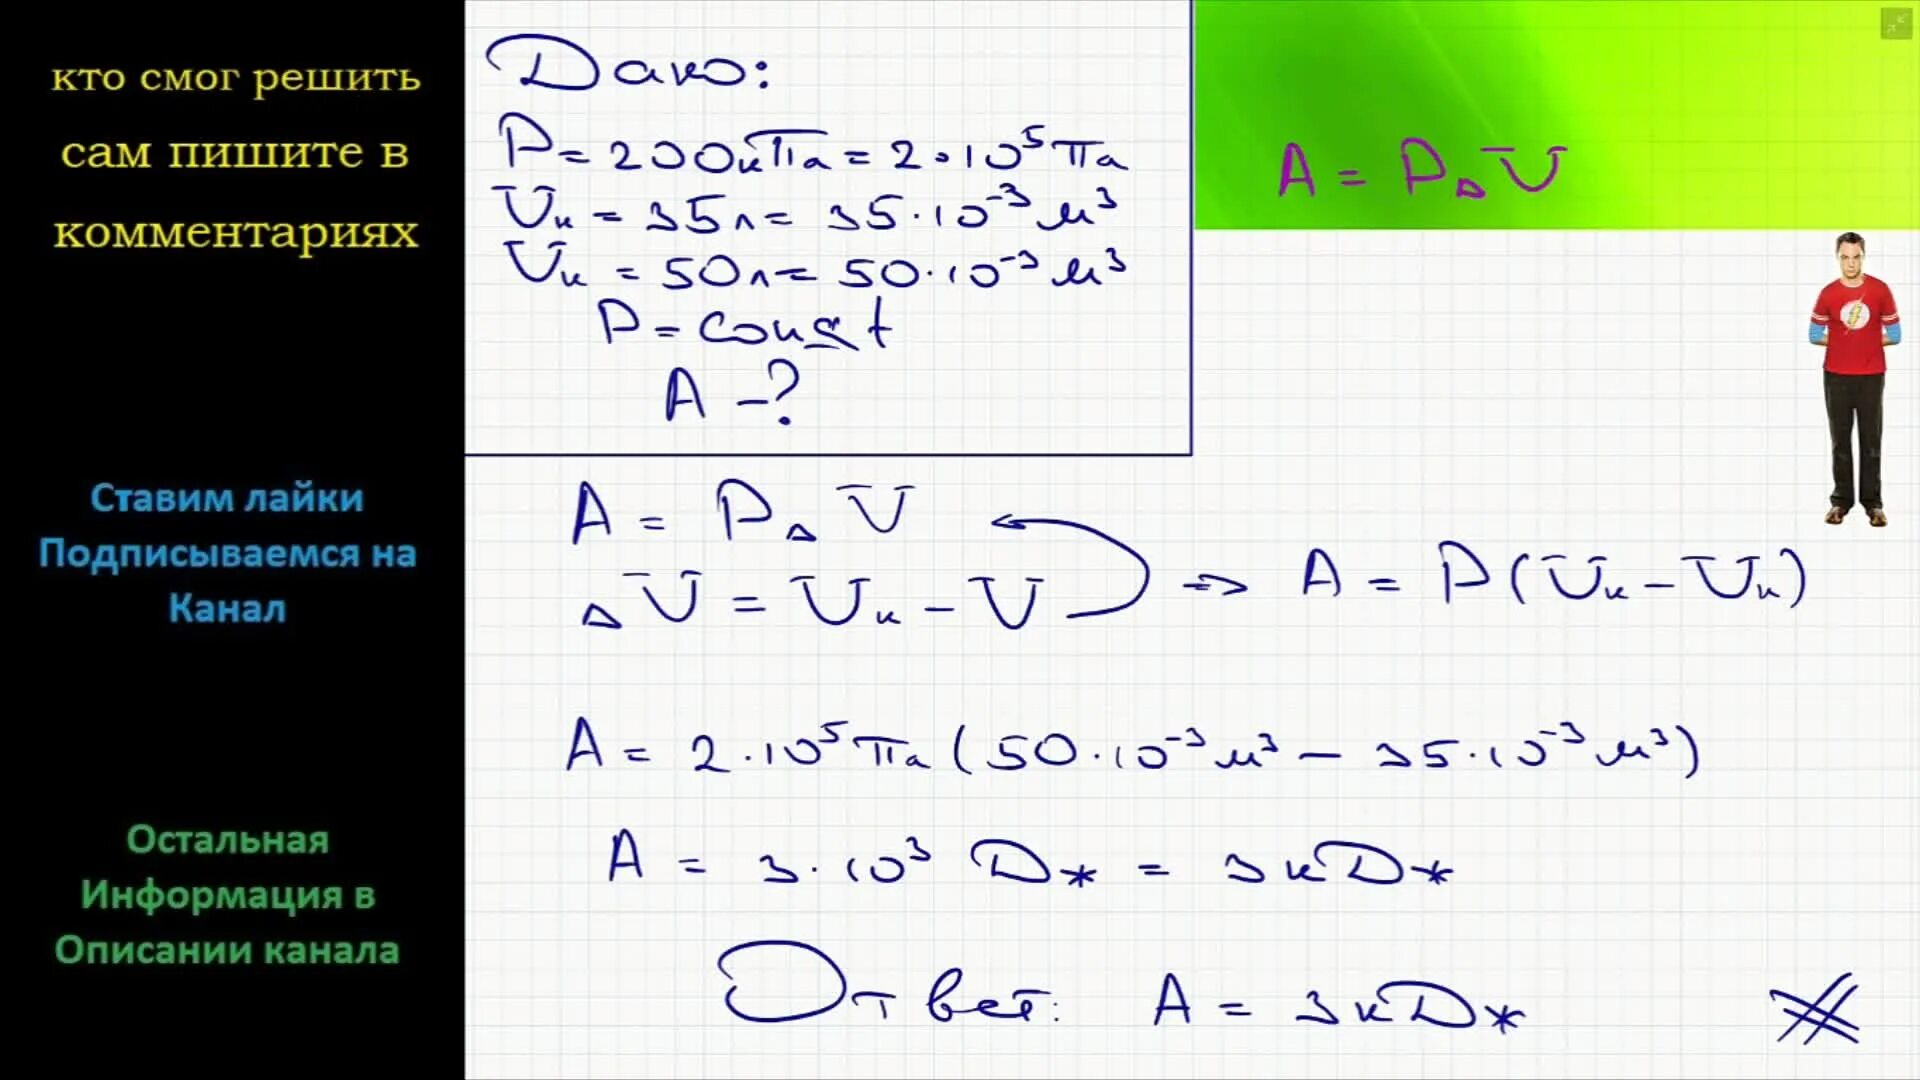 кто смог решить
сам пишите в
комментариях
Ставим лайки
Подписываемся на
Канал
Остальная
Информация в
Описании канала
Дано:
P = 200кПа = 2·10⁵Па
Vн = 35л = 35·10⁻³м³
Vк = 50л = 50·10⁻³м³
P = const
A - ?
A = PΔV
A = PΔV
ΔV = Vк - V ⇒ A = P(Vк - Vн)
A = 2·10⁵Па(50·10⁻³м³ - 35·10⁻³м³)
A = 3·10³ Дж = 3кДж
Ответ: A = 3кДж